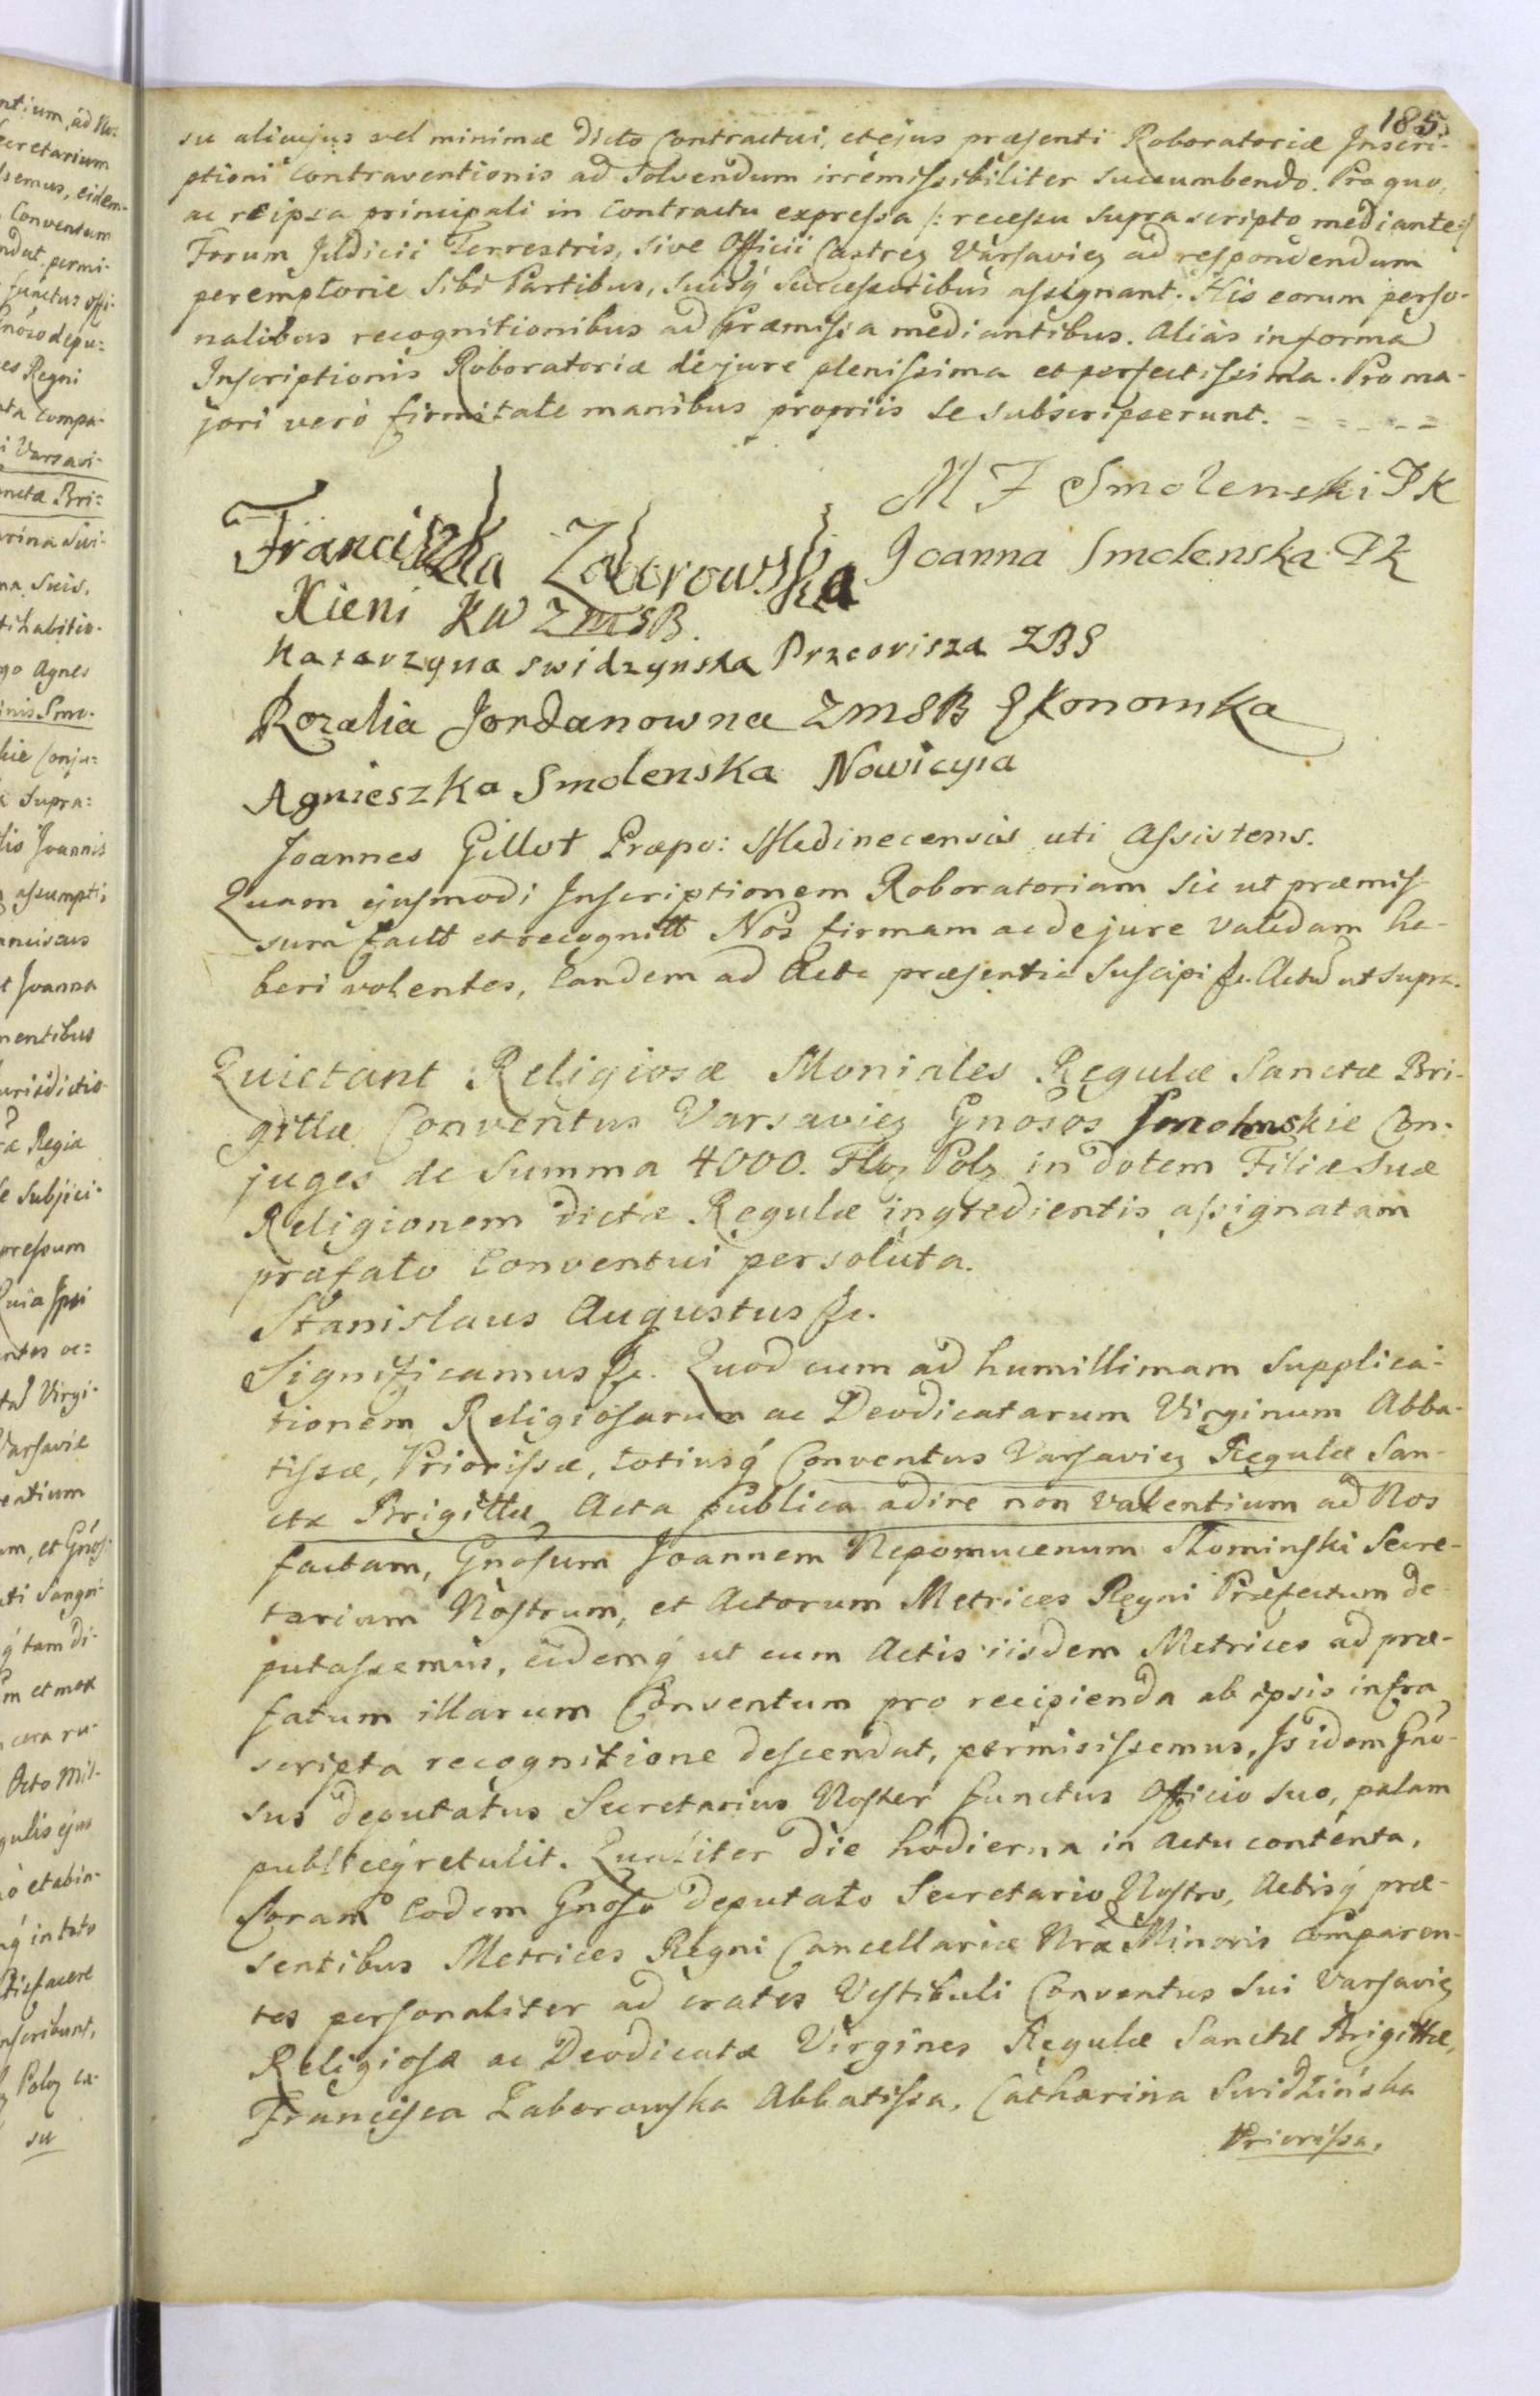 185.
su alicujus vel minimæ dicto Contractui, et ejus præsenti Roboratoriæ Inscri-
ptioni Contraventionis ad Solvendum irremissibiliter succumbendo. Pro quo,
ac re ipsa principali in Contractu expressa /: recessu supra scripto mediante :/
Forum Judicii Terrestris, sive Officii Castreń Varsavień ad respondendum
peremptorie Sibi Partibus, Suisq́ Successoribus assignant. His eorum perso-
nalibus recognitionibus ad Præmissa mediantibus. Aliàs in forma
Inscriptionis Roboratoriæ de jure plenissima et perfectissima. Pro ma-
jori verò firmitate manibus propriis se subscripserunt. - = - - =
M J Smolenski P K
Franciszka Zaborowska
Joanna Smolenska P K
Xieni KW ZMSB.
Katarzyna swidzynska Przeorisza ZBS
Rozalia Jordanowna ZMSB Ekonomka
Agnieszka Smolenska Nowicyia
Joannes Gillot Præpo: Medinecensis uti Assistens.
Quam ejusmodi Inscriptionem Roboratoriam sic ut præmis-
sum factt et recognitt Nos firmam ac de jure validam ha-
beri volentes, Eandem ad Acta præsentia suscipi &c. Actũ ut supra.
Quietant Religiosæ Moniales Regulæ Sanctæ Bri-
gittæ Conventus Varsavień Gnosos Smolenskie Con-
juges de Summa 4000. Floń Polń in dotem Filiæ suæ
Religionem dictæ Regulæ ingredientis assignatam
præfato Conventui persoluta.
Stanislaus Augustus &c.
Significamus &c. Quod cum ad humillimam Supplica-
tionem Religiosarum ac Deodicatarum Virginum Abba-
tissæ, Priorissæ, totiusq́ Conventus Varsavień Regulæ San-
ctæ Brigittæ Acta publica adire non valentium ad Nos
factam, Gnosum Joannem Nepomucenum Słominski Secre-
tarium Nostrum, et Actorum Metrices Regni Præfectum de-
putassemus, eidemq́ ut cum Actis iisdem Metrices ad præ-
fatum illarum Conventum pro recipienda ab ipsis infra
scripta recognitione descendat, permisissemus, Is idem Gno-
sus deputatus Secretarius Noster functus Officio suo, palam
publiceq́ retulit. Qualiter die hodierna in Actu contenta,
Coram Eodem Gnoso deputato Secretario Nostro, Actisq́ præ-
sentibus Metrices Regni Cancellariæ Nræ Minoris Comparen-
tes personaliter ad crates Vestibuli Conventus Sui Varsavień
Religiosæ ac Deodicatæ Virgines Regulæ Sanctæ Brigittæ,
Francisca Zaborowska Abbatissa, Catharina Swidzińska
Priorissa,